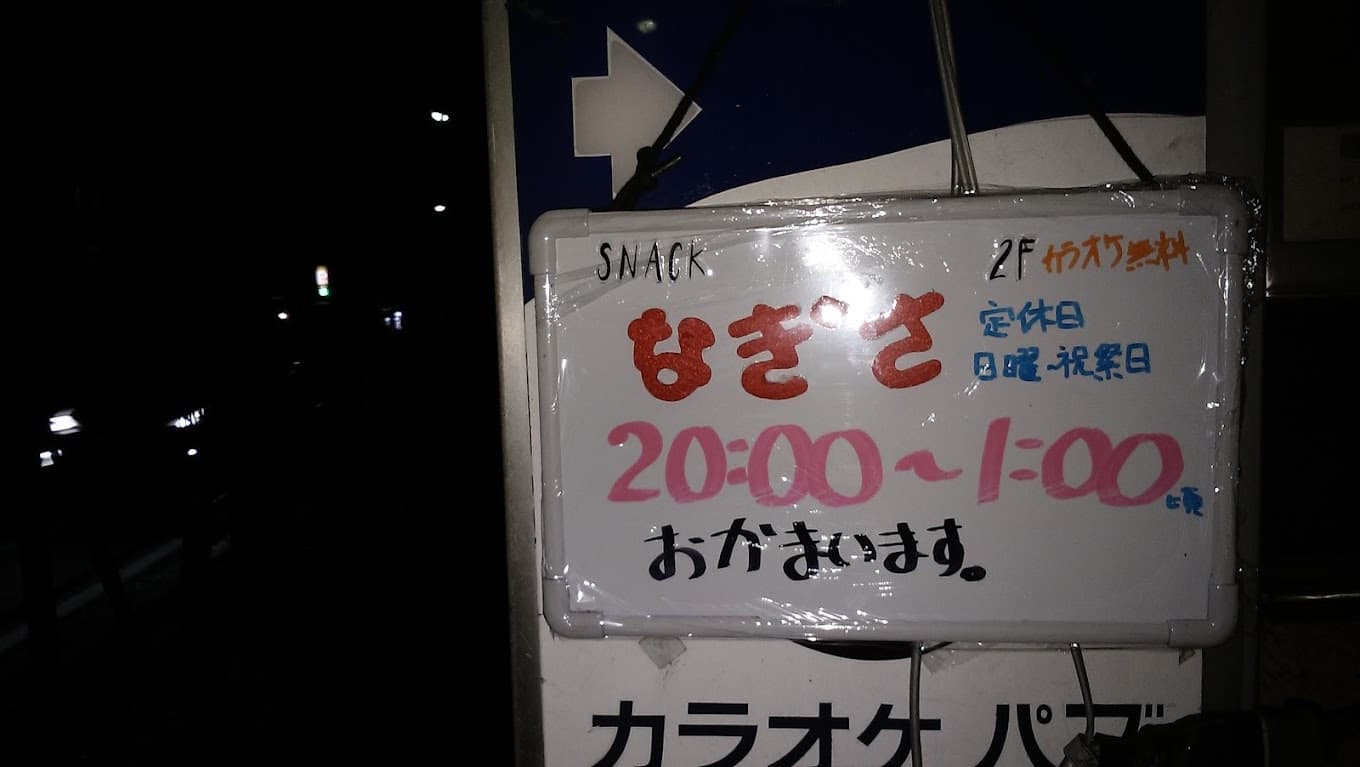 SNACK
2F カラオケ無料
なぎさ
定休日
日曜~祝祭日
20:00~1:00頃
おかまいます。
カラオケ パブ